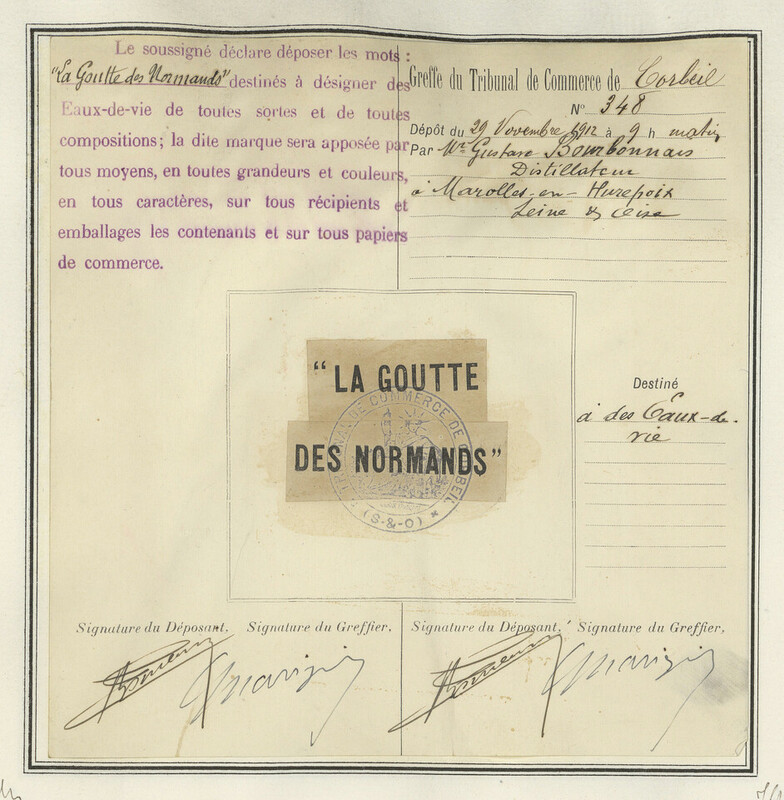 Le soussigné déclare déposer les mots :
"La Goutte des Normands" destinés à désigner des
Eaux-de-vie de toutes sortes et de toutes
compositions; la dite marque sera apposée par
tous moyens, en toutes grandeurs et couleurs,
en tous caractères, sur tous récipients et
emballages les contenants et sur tous papiers
de commerce.
Greffe du Tribunal de Commerce de Corbeil
N° 348
Dépôt du 29 Novembre 1912 à 9 h matin
Par Mr Gustave Bourbonnais
Distillateur
à Marolles-en-Hurepoix
Seine & Oise
"LA GOUTTE
DES NORMANDS"
TRIBUNAL DE COMMERCE DE CORBEIL
(S-&-O)
Destiné
à des Eaux-de-
vie
Signature du Déposant. Signature du Greffier.
Signature du Déposant. Signature du Greffier.